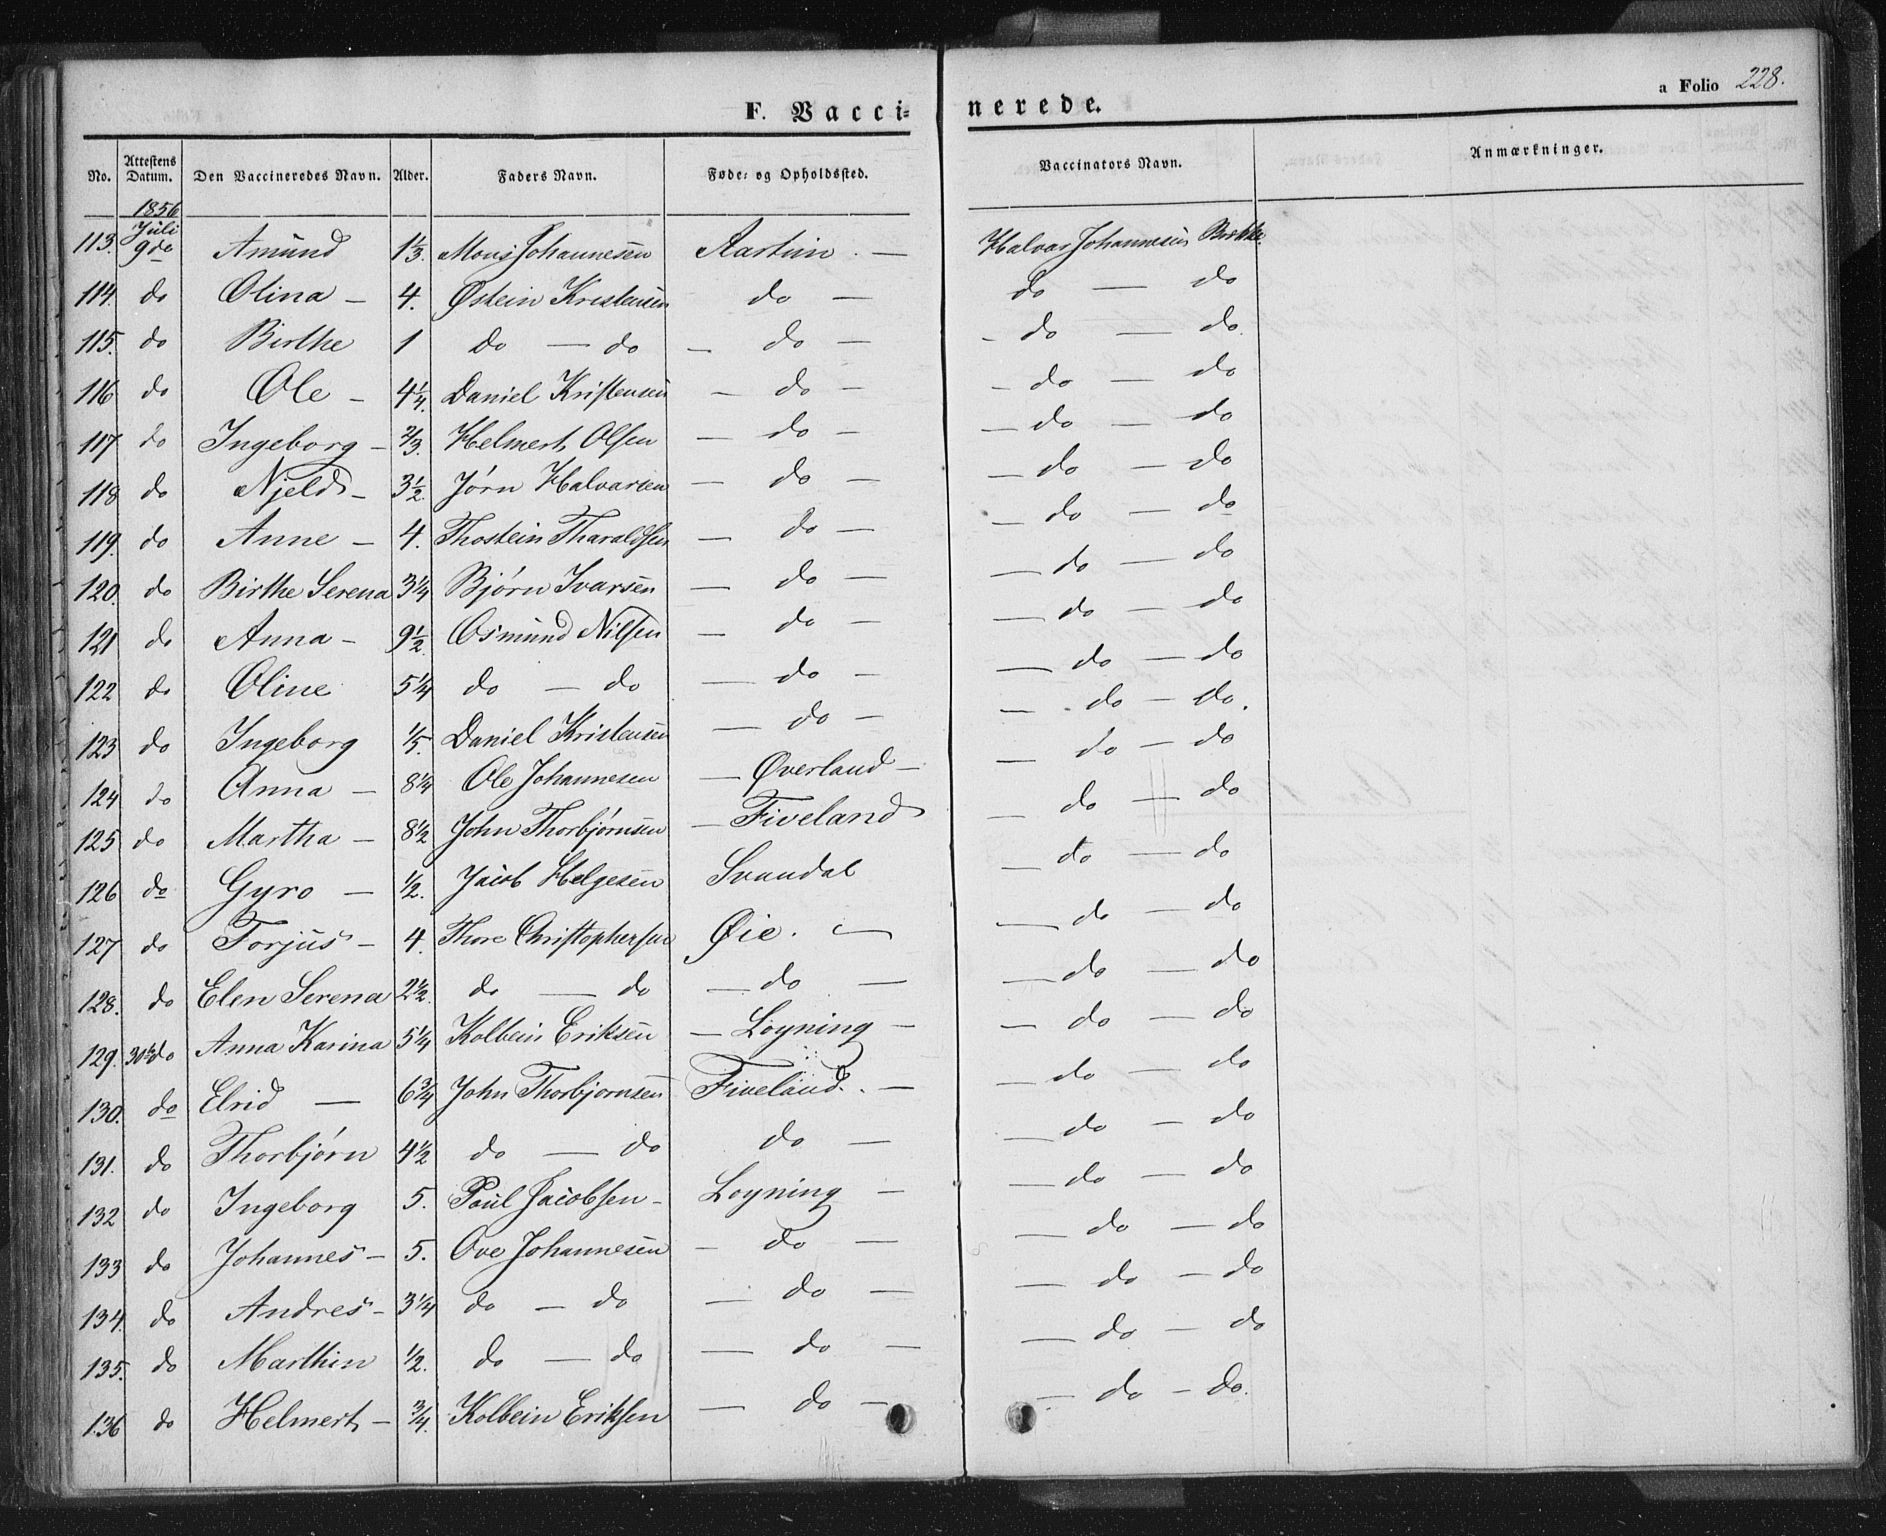 a Folio 228.
F. Vacci=nerede.
No. Attestens Datum. Den Vaccineredes Navn. Alder. Faders Navn. Føde= og Opholdssted. Vaccinators Navn. Anmærkninger.
1856
Juli
113. 9de Amund 1 1/3. Mons Johannesen Aartun. — Halvar Johannesen Birkke
114. do Olina — 4. Østein Kristensen do — do — do
115. do Birthe 1 do — do — do — - do — do.
116 do Ole - 4 1/4. Daniel Kristensen — do — - do — do
117. do Ingeborg - 2/3. Helmert Olsen — do — — do — do
118 do Njeld - 3 1/2. Jørn Halvarsen — do — — do — do
119. do Anne — 4. Thostein Tharaldsen — do — — do — do
120. do Birthe Serena 3 1/4 Bjørn Ivarsen — do — — do — do
121 do Anna - 9 1/2. Osmund Nilsen — do — — do — do
122 do Oline 5 1/4 do — do — do — — do — do
123 do Ingeborg 1/5. Daniel Kristensen — do — — do — do.
124 do Anna — 8 1/4 Ole Johannesen — Øverland — — do — do
125 do Martha — 8 1/2 John Thorbjørnsen — Fiveland — do — do
126 do Gyro — 1/2. Jacob Helgesen Svandal — do — do
127 do Torjus - 4. Thore Christophersen Øie. — — do — do
128. do Elen Serena 2 1/2. do — do — do — — do — do
129. 30te do Anna Karina 5 1/4 Kolbein Eriksen — Løyning — — do — do
130. do Elrid — 6 3/4 John Thorbjørnsen Fiveland. — — do — do
131. do Thorbjørn 4 1/2 do — do do — — do — do
132 do Ingeborg 5. Poul Jacobsen - Loyning — — do — do
133 do Johannes - 5. Ove Johannesen — do — — do — do
134. do Andres - 3 1/4 do — do — do — — do — do
135. do Marthin 1/2. do — do — do — — do — do
136 do Helmert — 3/4. Kolbein Eriksen — do — — do — do.